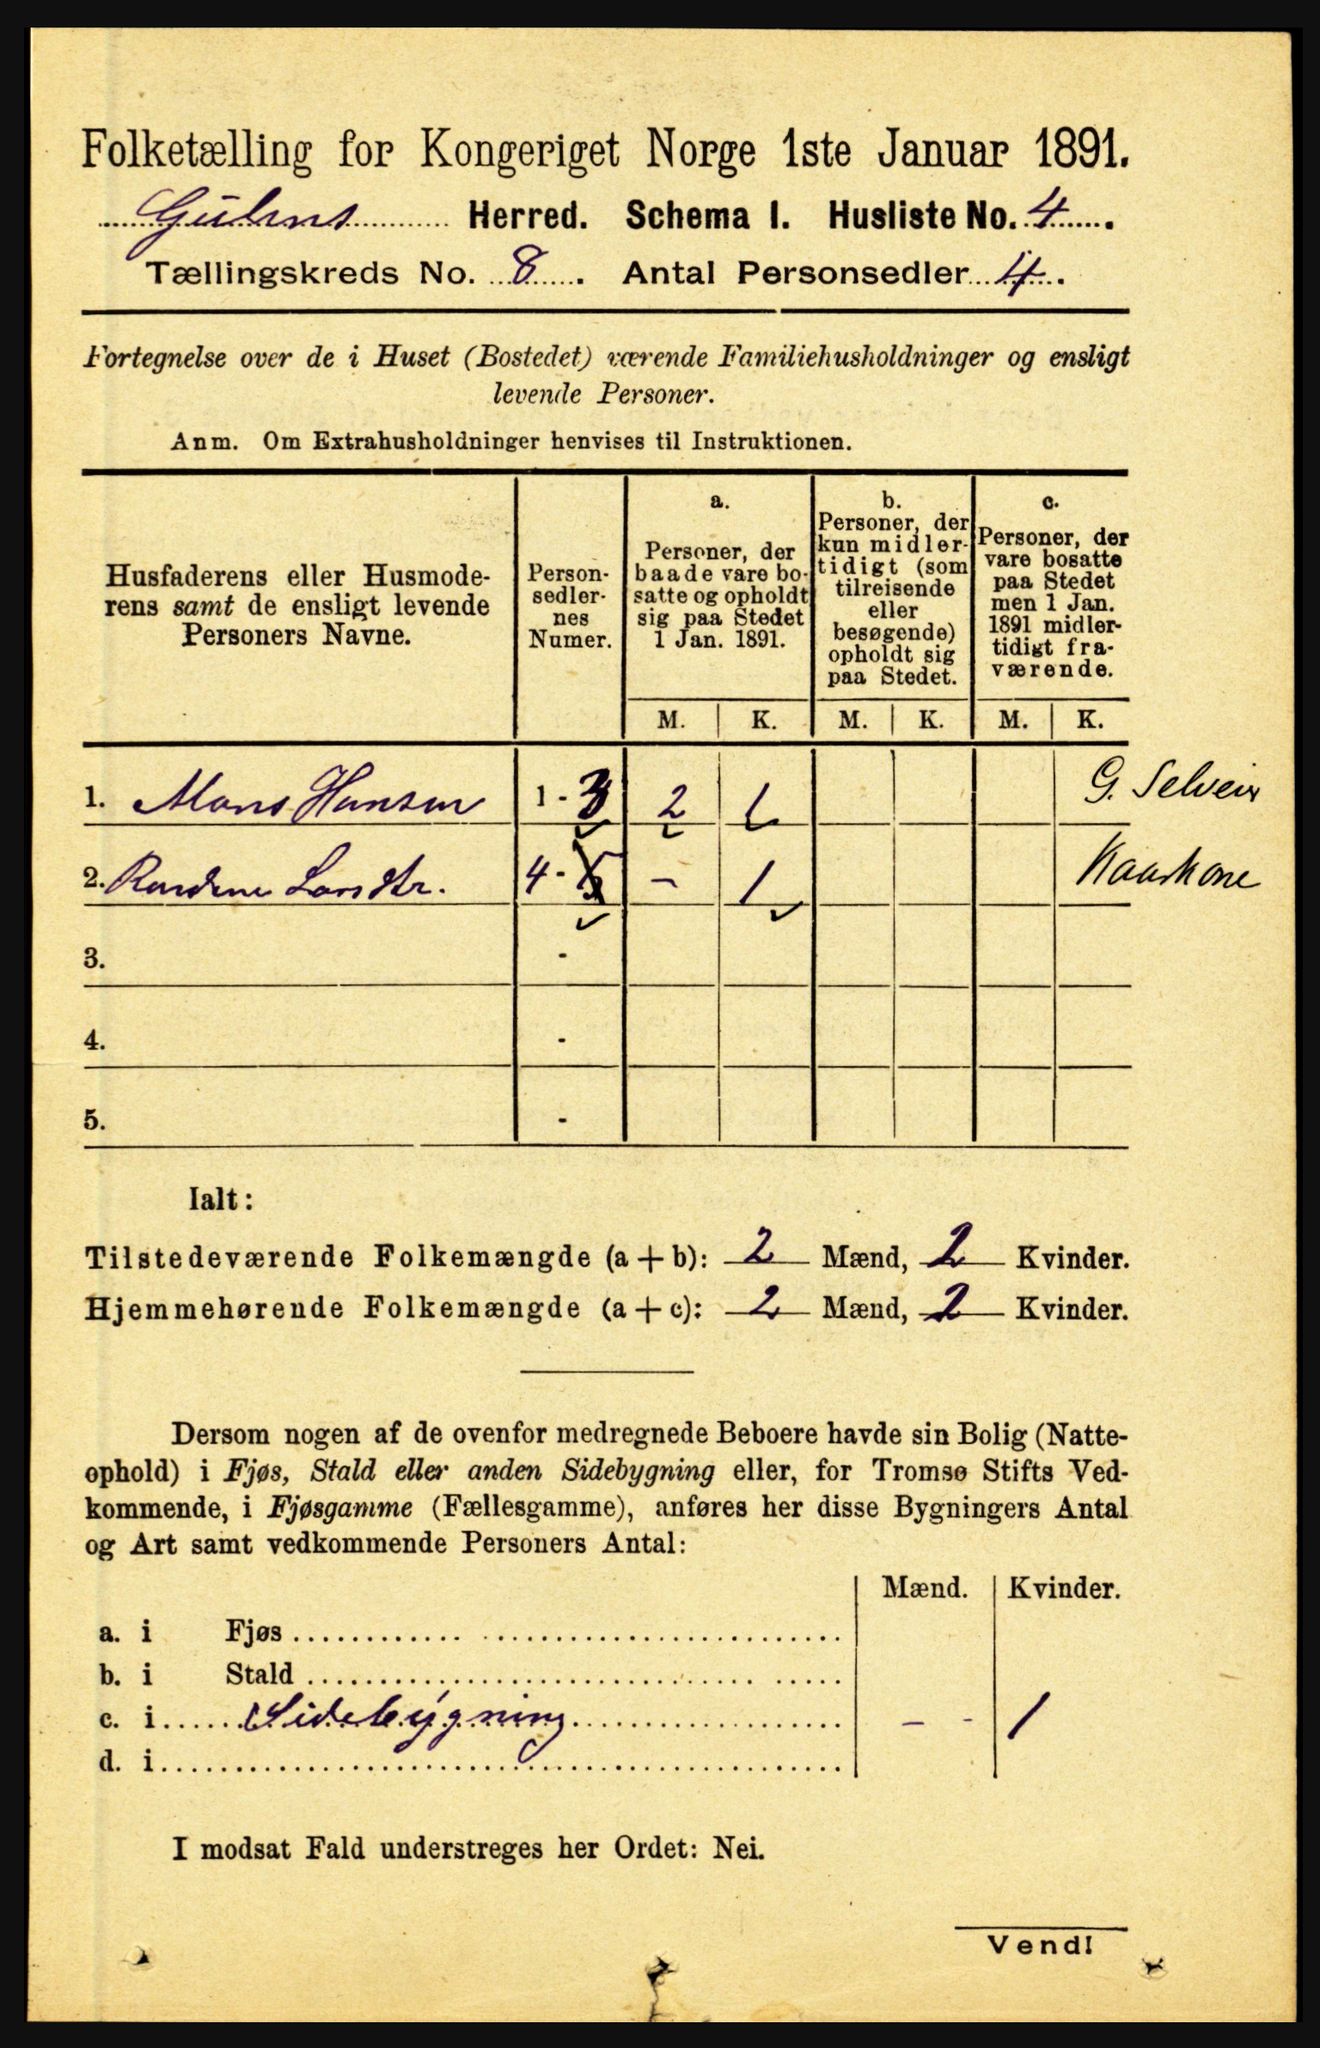 Folketælling for Kongeriget Norge 1ste Januar 1891.
Gulens Herred. Schema I. Husliste No. 4.
Tællingskreds No. 8. Antal Personsedler 4.
Fortegnelse over de i Huset (Bostedet) værende Familiehusholdninger og ensligt
levende Personer.
Anm. Om Extrahusholdninger henvises til Instruktionen.
Husfaderens eller Husmode-
rens samt de ensligt levende
Personers Navne.
Person-
sedler-
nes
Numer.
a.
Personer, der
baade vare bo-
satte og opholdt
sig paa Stedet
1 Jan. 1891.
b.
Personer, der
kun midler-
tidigt (som
tilreisende
eller
besøgende)
opholdt sig
paa Stedet.
c.
Personer, der
vare bosatte
paa Stedet
men 1 Jan.
1891 midler-
tidigt fra-
værende.
M. K. M. K. M. K.
1. Mons Hansen 1 - 3 2 1 G. Selveier
2. 4 - - 1 Kaarkone
3. -
4. -
5. -
Ialt:
Tilstedeværende Folkemængde (a + b): 2 Mænd, 2 Kvinder.
Hjemmehørende Folkemængde (a + c): 2 Mænd, 2 Kvinder.
Dersom nogen af de ovenfor medregnede Beboere havde sin Bolig (Natte-
ophold) i Fjøs, Stald eller anden Sidebygning eller, for Tromsø Stifts Ved-
kommende, i Fjøsgamme (Fællesgamme), anføres her disse Bygningers Antal
og Art samt vedkommende Personers Antal:
Mænd. Kvinder.
a. i Fjøs
b. i Stald
c. i Sidebygning - - 1
d. i
I modsat Fald understreges her Ordet: Nei.
Vend!